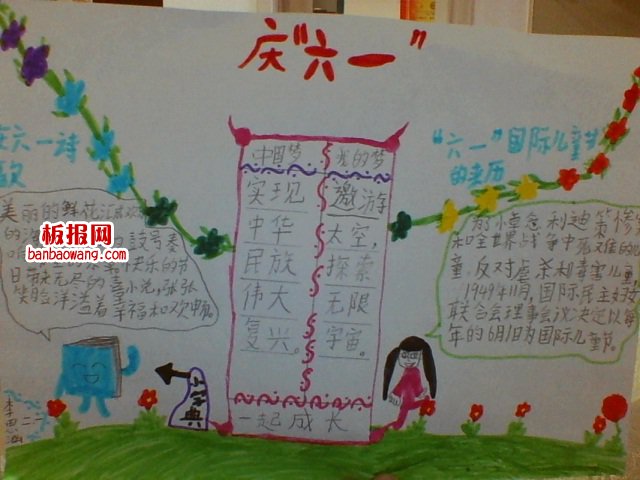 庆"六一"
在六一诗
歌
"六一"国际儿童节
的来历
中国梦
我的梦
实现
中华
民族
伟大
复兴。
遨游
太空，
探索
无限
宇宙。
一起成长
美丽的鲜花
的
鼓号奏
快乐的节
日带
小说，张张
笑脸洋溢着幸福和欢畅。
板报网
banbaowang.com
为
和全世界战争中死难的儿
童，反对虐杀和毒害儿童
1949年11月，国际民主妇
联合会理事会议决定以每
年的6月1日为国际儿童节。
字典
李思
二二